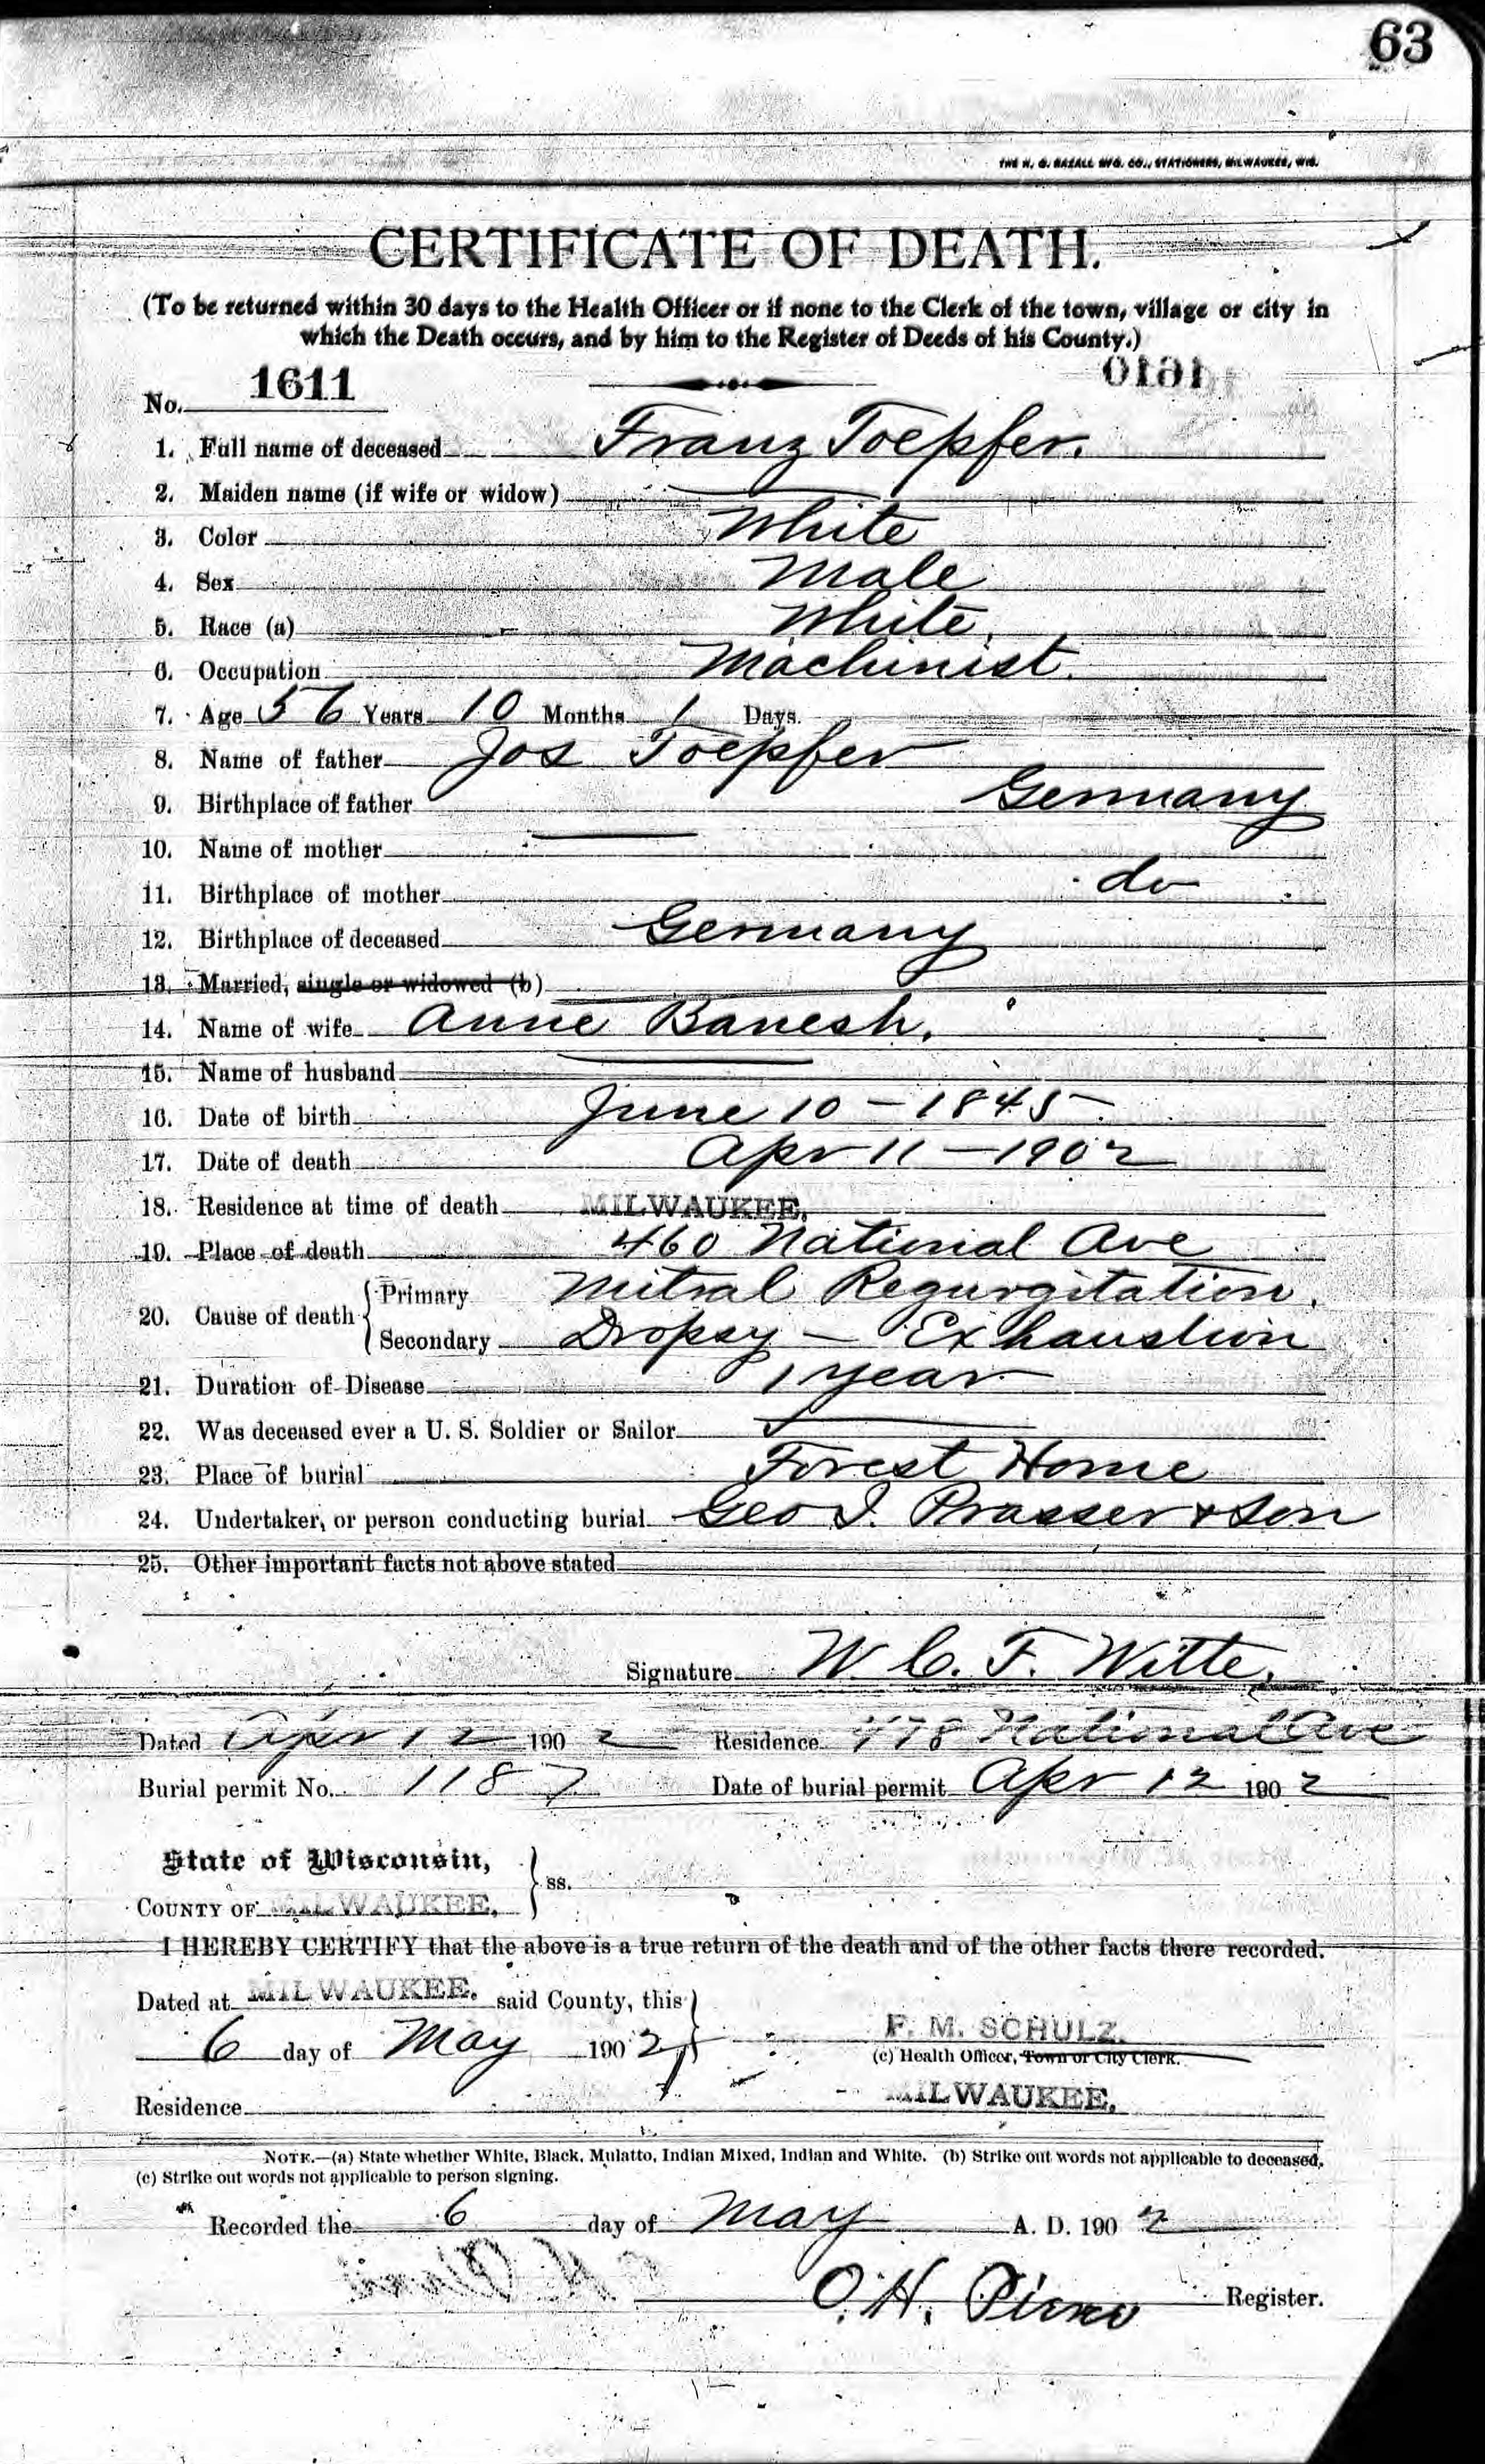 63
THE H. G. RAZALL MFG. CO., STATIONERS, MILWAUKEE, WIS.
CERTIFICATE OF DEATH.
(To be returned within 30 days to the Health Officer or if none to the Clerk of the town, village or city in
which the Death occurs, and by him to the Register of Deeds of his County.)
No. 1611
1. Full name of deceased Franz Toepfer.
2. Maiden name (if wife or widow) —
3. Color White
4. Sex Male
5. Race (a) White,
6. Occupation Machinist.
7. Age 56 Years 10 Months 1 Days.
8. Name of father Jos Toepfer
9. Birthplace of father Germany
10. Name of mother —
11. Birthplace of mother do
12. Birthplace of deceased Germany
13. Married, single or widowed (b)
14. Name of wife Anne Banesh.
15. Name of husband —
16. Date of birth June 10 - 1845
17. Date of death Apr 11 - 1902
18. Residence at time of death MILWAUKEE.
19. Place of death 460 National Ave
20. Cause of death { Primary Mitral Regurgitation.
Secondary Dropsy - Exhaustion
21. Duration of Disease 1 year
22. Was deceased ever a U. S. Soldier or Sailor —
23. Place of burial Forest Home
24. Undertaker, or person conducting burial Geo I. Prasser & Son
25. Other important facts not above stated
Signature W. C. F. Witte.
Dated Apr 12 1902 Residence 478 National Ave
Burial permit No. 1187 Date of burial permit Apr 12 1902
State of Wisconsin, } ss.
COUNTY OF MILWAUKEE.
I HEREBY CERTIFY that the above is a true return of the death and of the other facts there recorded.
Dated at MILWAUKEE. said County, this }
6 day of May 1902 F. M. SCHULZ.
(c) Health Officer, Town or City Clerk.
Residence MILWAUKEE.
NOTE.—(a) State whether White, Black, Mulatto, Indian Mixed, Indian and White. (b) Strike out words not applicable to deceased.
(c) Strike out words not applicable to person signing.
Recorded the 6 day of May A. D. 1902
O. H. Register.